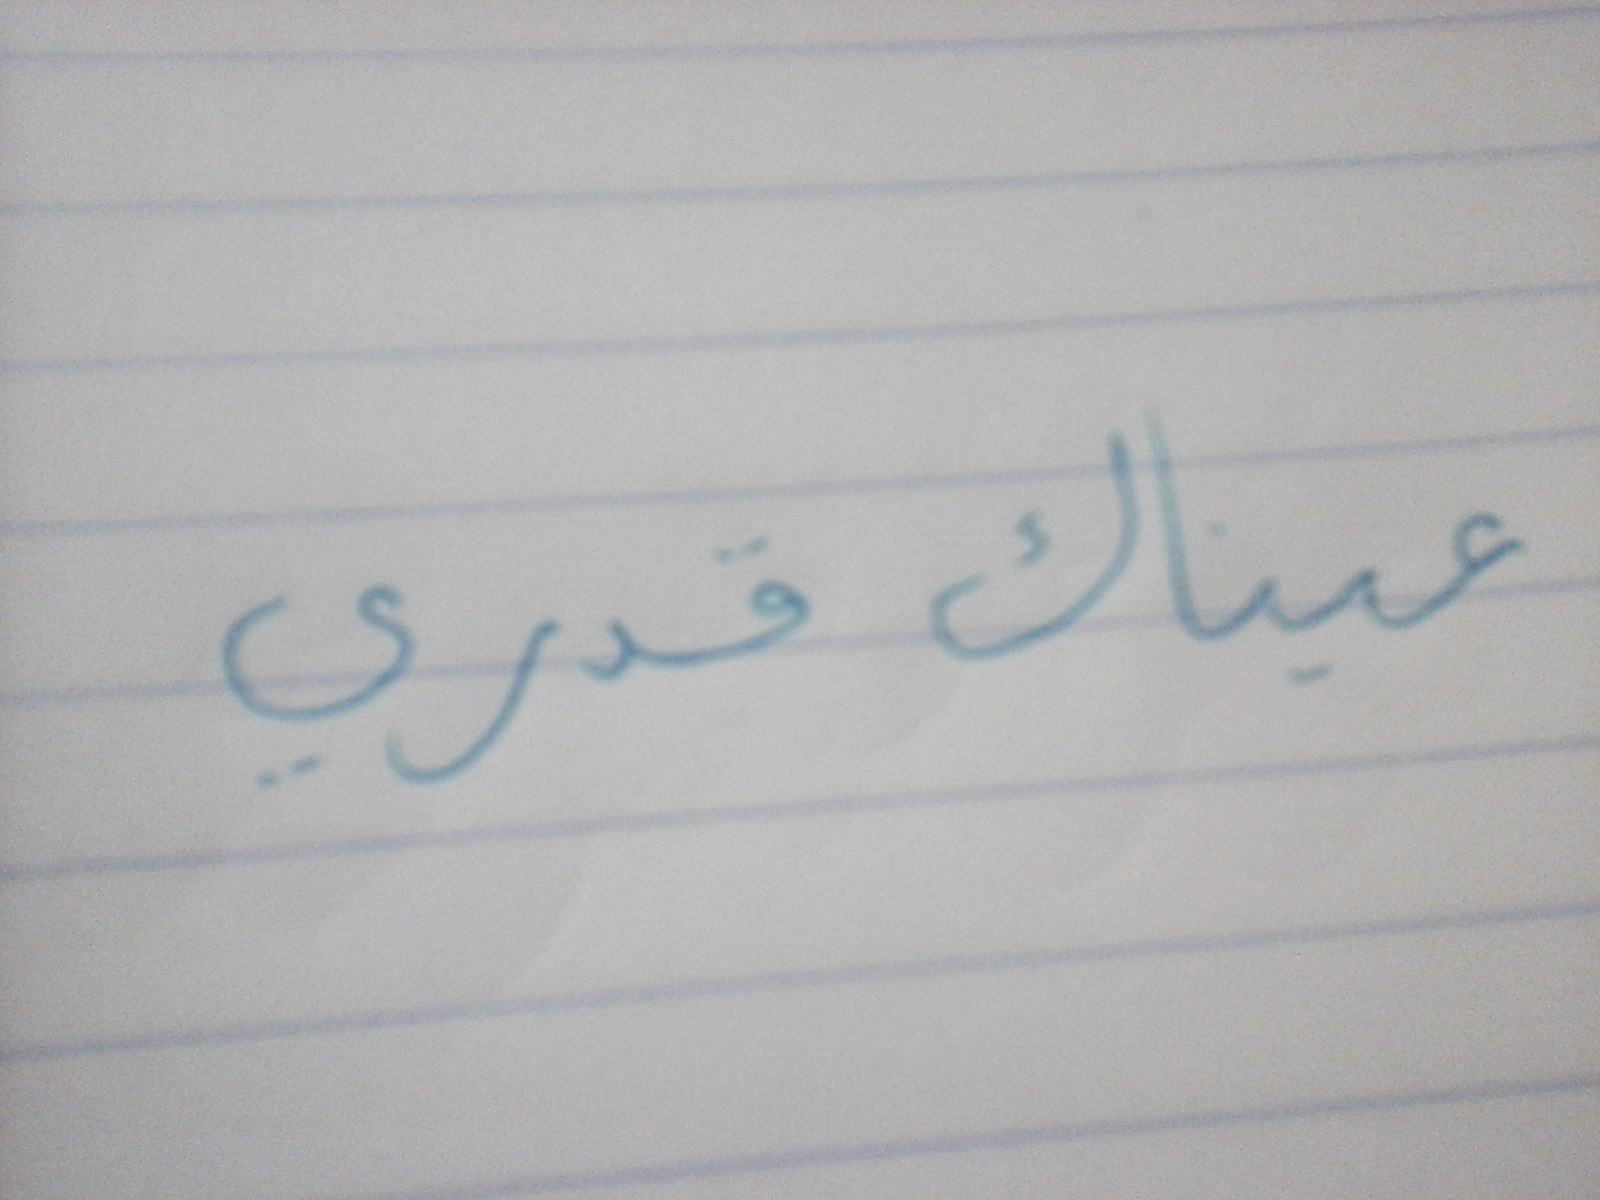 عيناك قدري